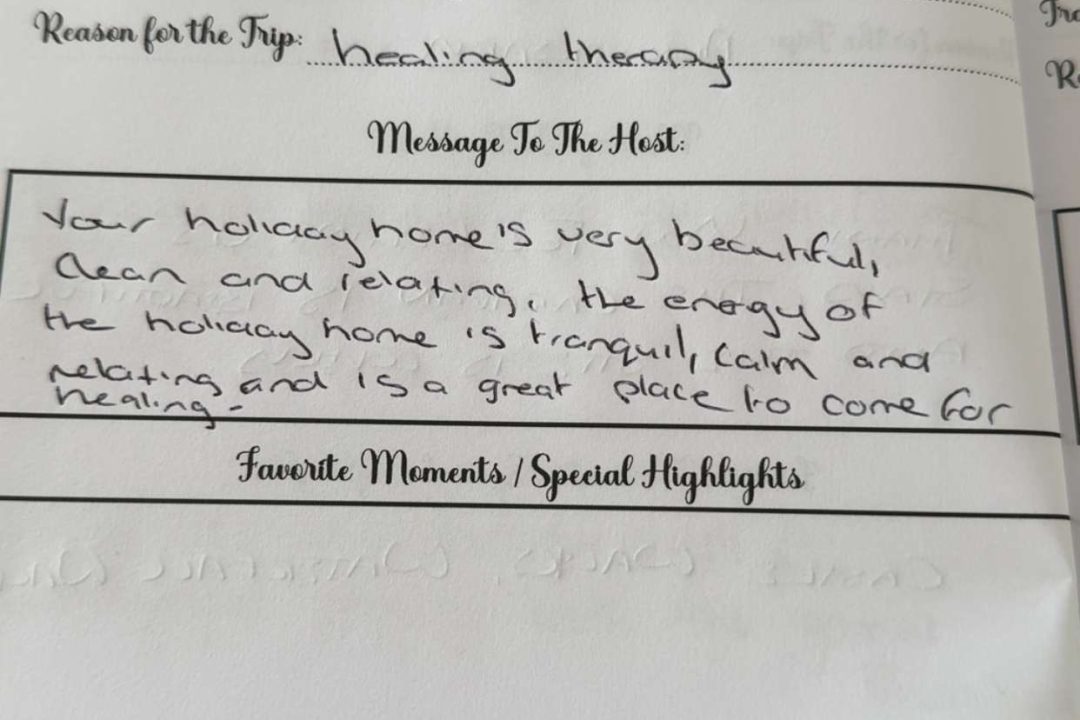 Reason for the Trip: healing therapy
Message To The Host:
Your holiday home is very beautiful,
clean and relating. the energy of
the holiday home is tranquil, calm and
relating and is a great place to come for
healing.
Favorite Moments / Special Highlights